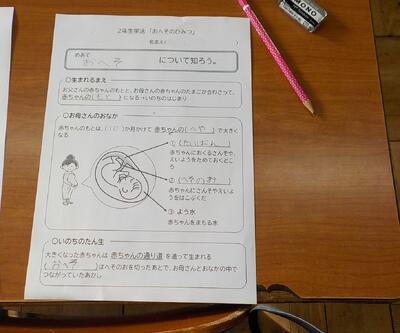 2年生学活「おへそのひみつ」
名まえ(　　　)
めあて
おへそ について知ろう。
○生まれるまえ
お父さんの赤ちゃんのもとと、お母さんの赤ちゃんのたまごが合わさって、
赤ちゃんの(もと)になる→いのちのはじまり
○お母さんのおなか
赤ちゃんのもとは、(10)か月かけて 赤ちゃんの(へや)で大きく
なる
① (たいばん)
赤ちゃんにおくるさんそや、
えいようをためておくところ
② (へそのお)
赤ちゃんにさんそやえいよ
うをはこぶくだ
③ よう水
赤ちゃんをまもる水
○いのちのたん生
大きくなった赤ちゃんは 赤ちゃんの通り道 を通って生まれる
(おへそ)はへそのおを切ったあとで、お母さんとおなかの中で
つながっていたあかし
MONO